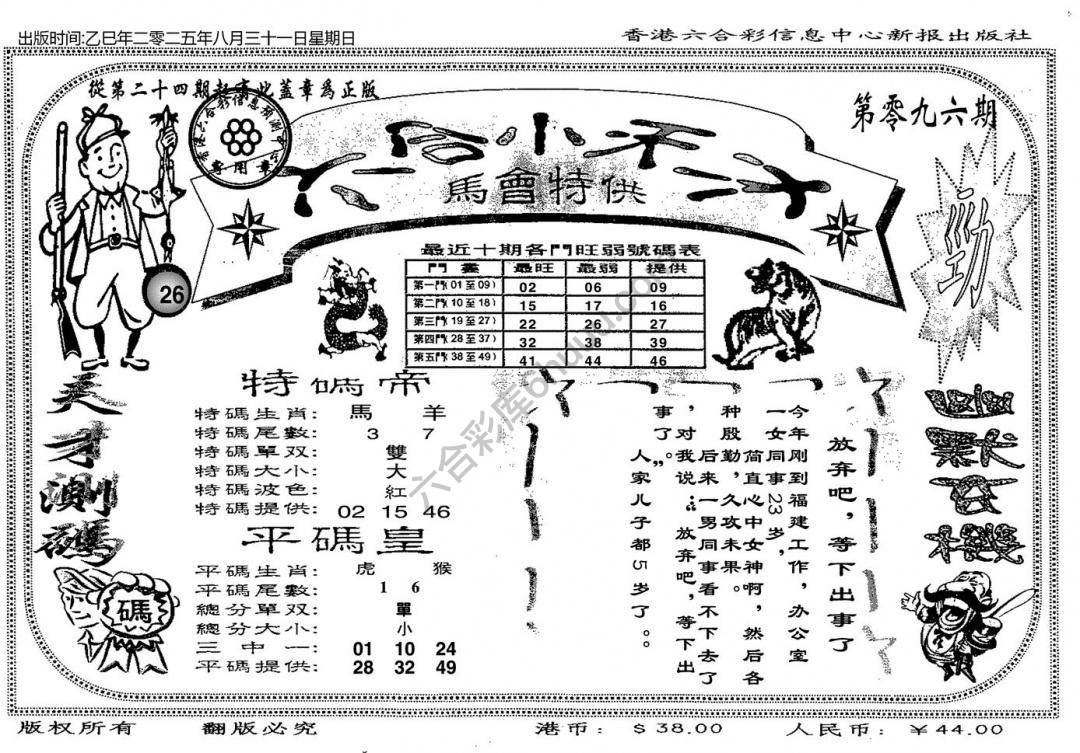 出版时间:乙巳年二零二五年八月三十一日星期日
香港六合彩信息中心新报出版社
從第二十四期起有此蓋章爲正版
專用章
第零九六期
六合小禾二才
馬會特供
勁
26
最近十期各門旺弱號碼表
門 最旺 最弱 提供
第一門(01至09) 02 06 09
第二門(10至18) 15 17 16
第三門(19至27) 22 26 27
第四門(28至37) 32 38 39
第五門(38至49) 41 44 46
天才測碼
碼
特碼帝
特碼生肖: 馬 羊
特碼尾數: 3 7
特碼單双: 雙
特碼大小: 大
特碼波色: 紅
特碼提供: 02 15 46
平碼皇
平碼生肖: 虎 猴
平碼尾數: 1 6
總分單双: 單
總分大小: 小
三中一: 01 10 24
平碼提供: 28 32 49
放弃吧,等下出事了
今年刚到福建工作,办公室
一女同事23岁,
简直心中女神啊,然后各
种殷勤,久攻未果。
后来一男同事看不下去了
,对我说:“放弃吧,等下出
事了。”
人家儿子都5岁了。。
幽默玄機
六合彩库6huuu.com
版权所有
翻版必究
港币: $38.00
人民币: ¥44.00